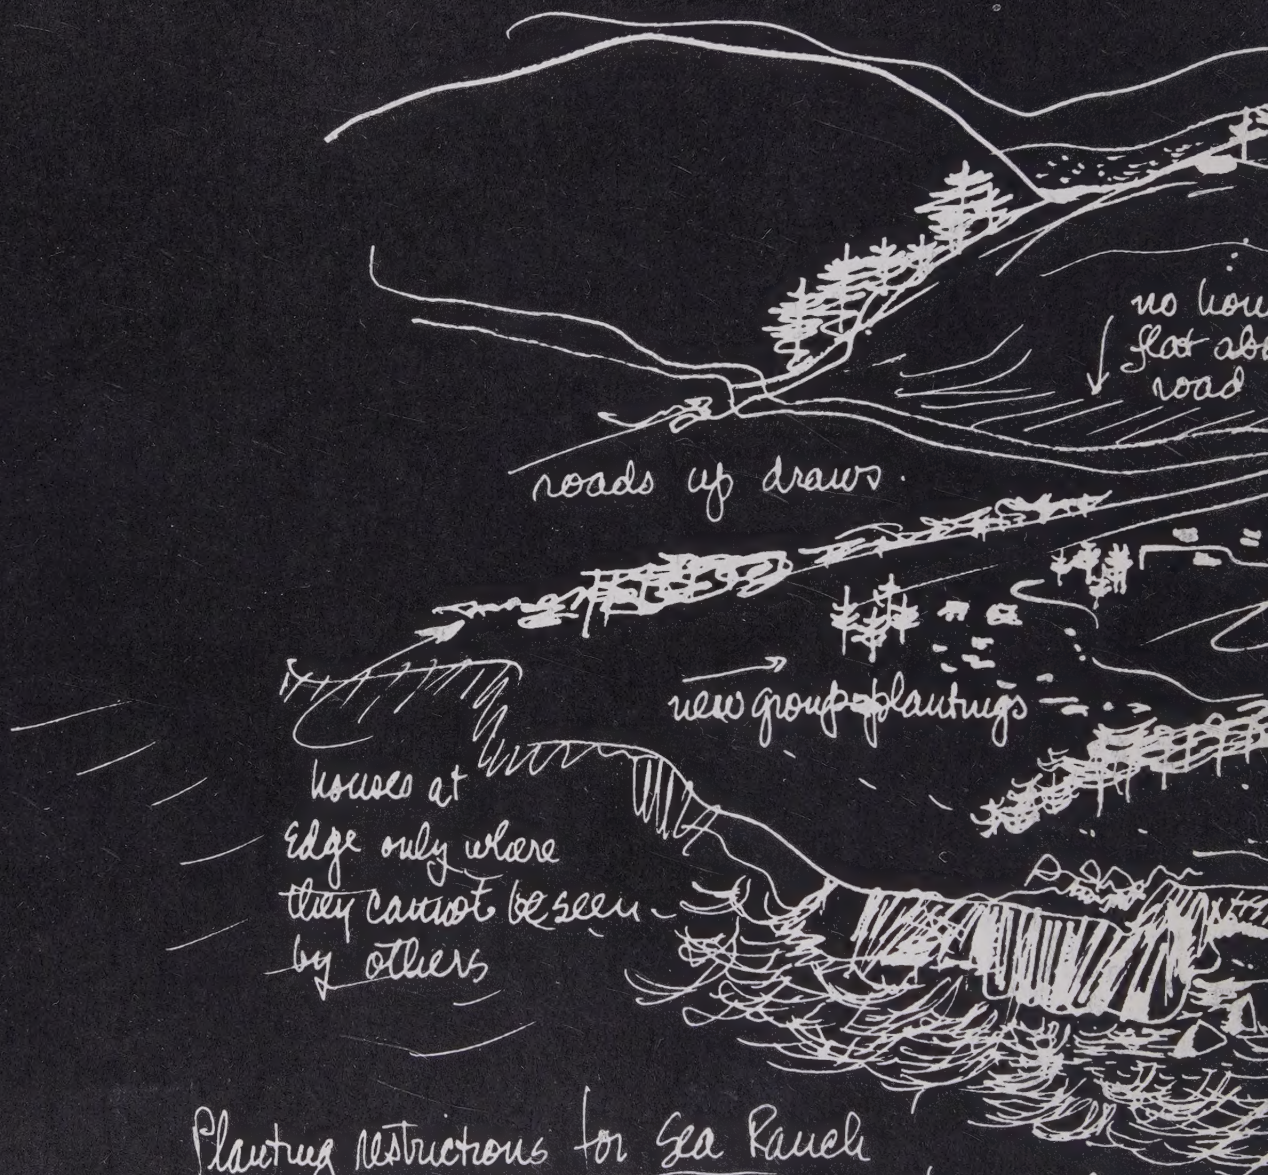 no
flat
road
roads up draws.
new group plantings
houses at
Edge only where
they cannot be seen
by others
Planting restrictions for Sea Ranch